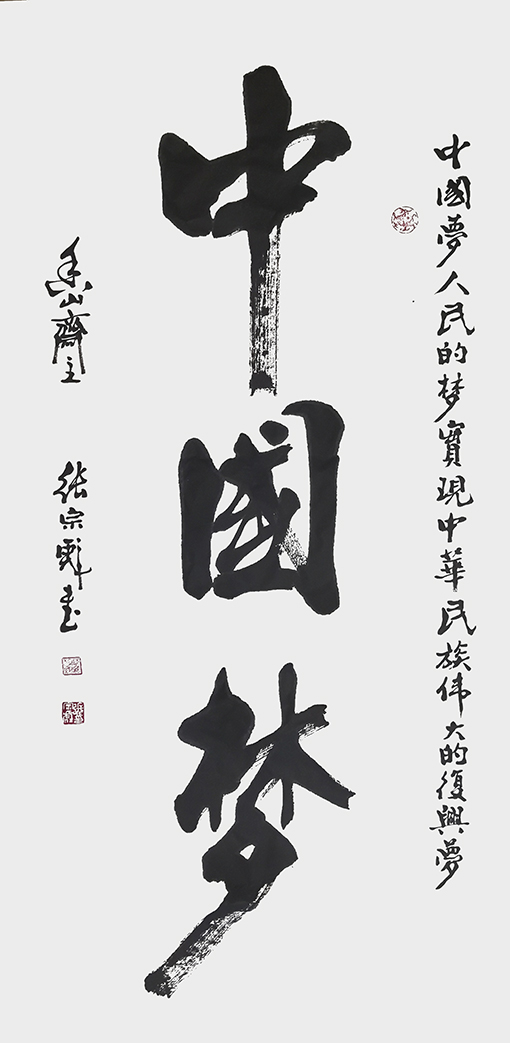 中國夢人民的梦實現中華民族伟大的復興夢
中國梦
山齋主 张宗彪書